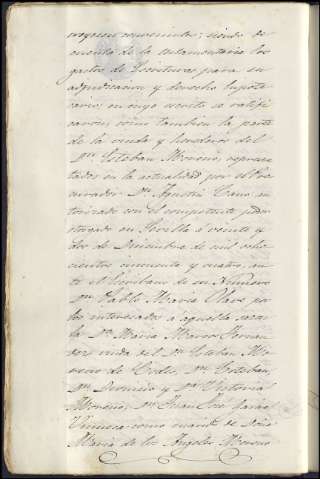 creyesen conveniente; siendo de
cuenta de la testamentaria los
gastos de Escrituras para su
adjudicacion y derecho hipote
cario; en cuyo escrito se ratifi
caron, como tambien la parte
de la viuda y herederos del
Dn. Esteban Moreno, represen
tados en la actualidad por el Pro
curador Dn. Agustin Cano au
torizado con el competente poder
otorgado en Sevilla a veinte y
dos de Diciembre de mil ocho
cientos cincuenta y cuatro, an
te el Escribano de su Número
Dn. Pablo Maria Olave por
los interesados a aquella sazon
la Da. Maria Marcos Fernan
dez viuda del Dn. Esteban Mo
reno de Dn. Esteban,
Dn. Dionisio y Da. Victoria
Moreno; Dn. Juan José Garcia
como marido de Doña
Maria de los Angeles Moreno